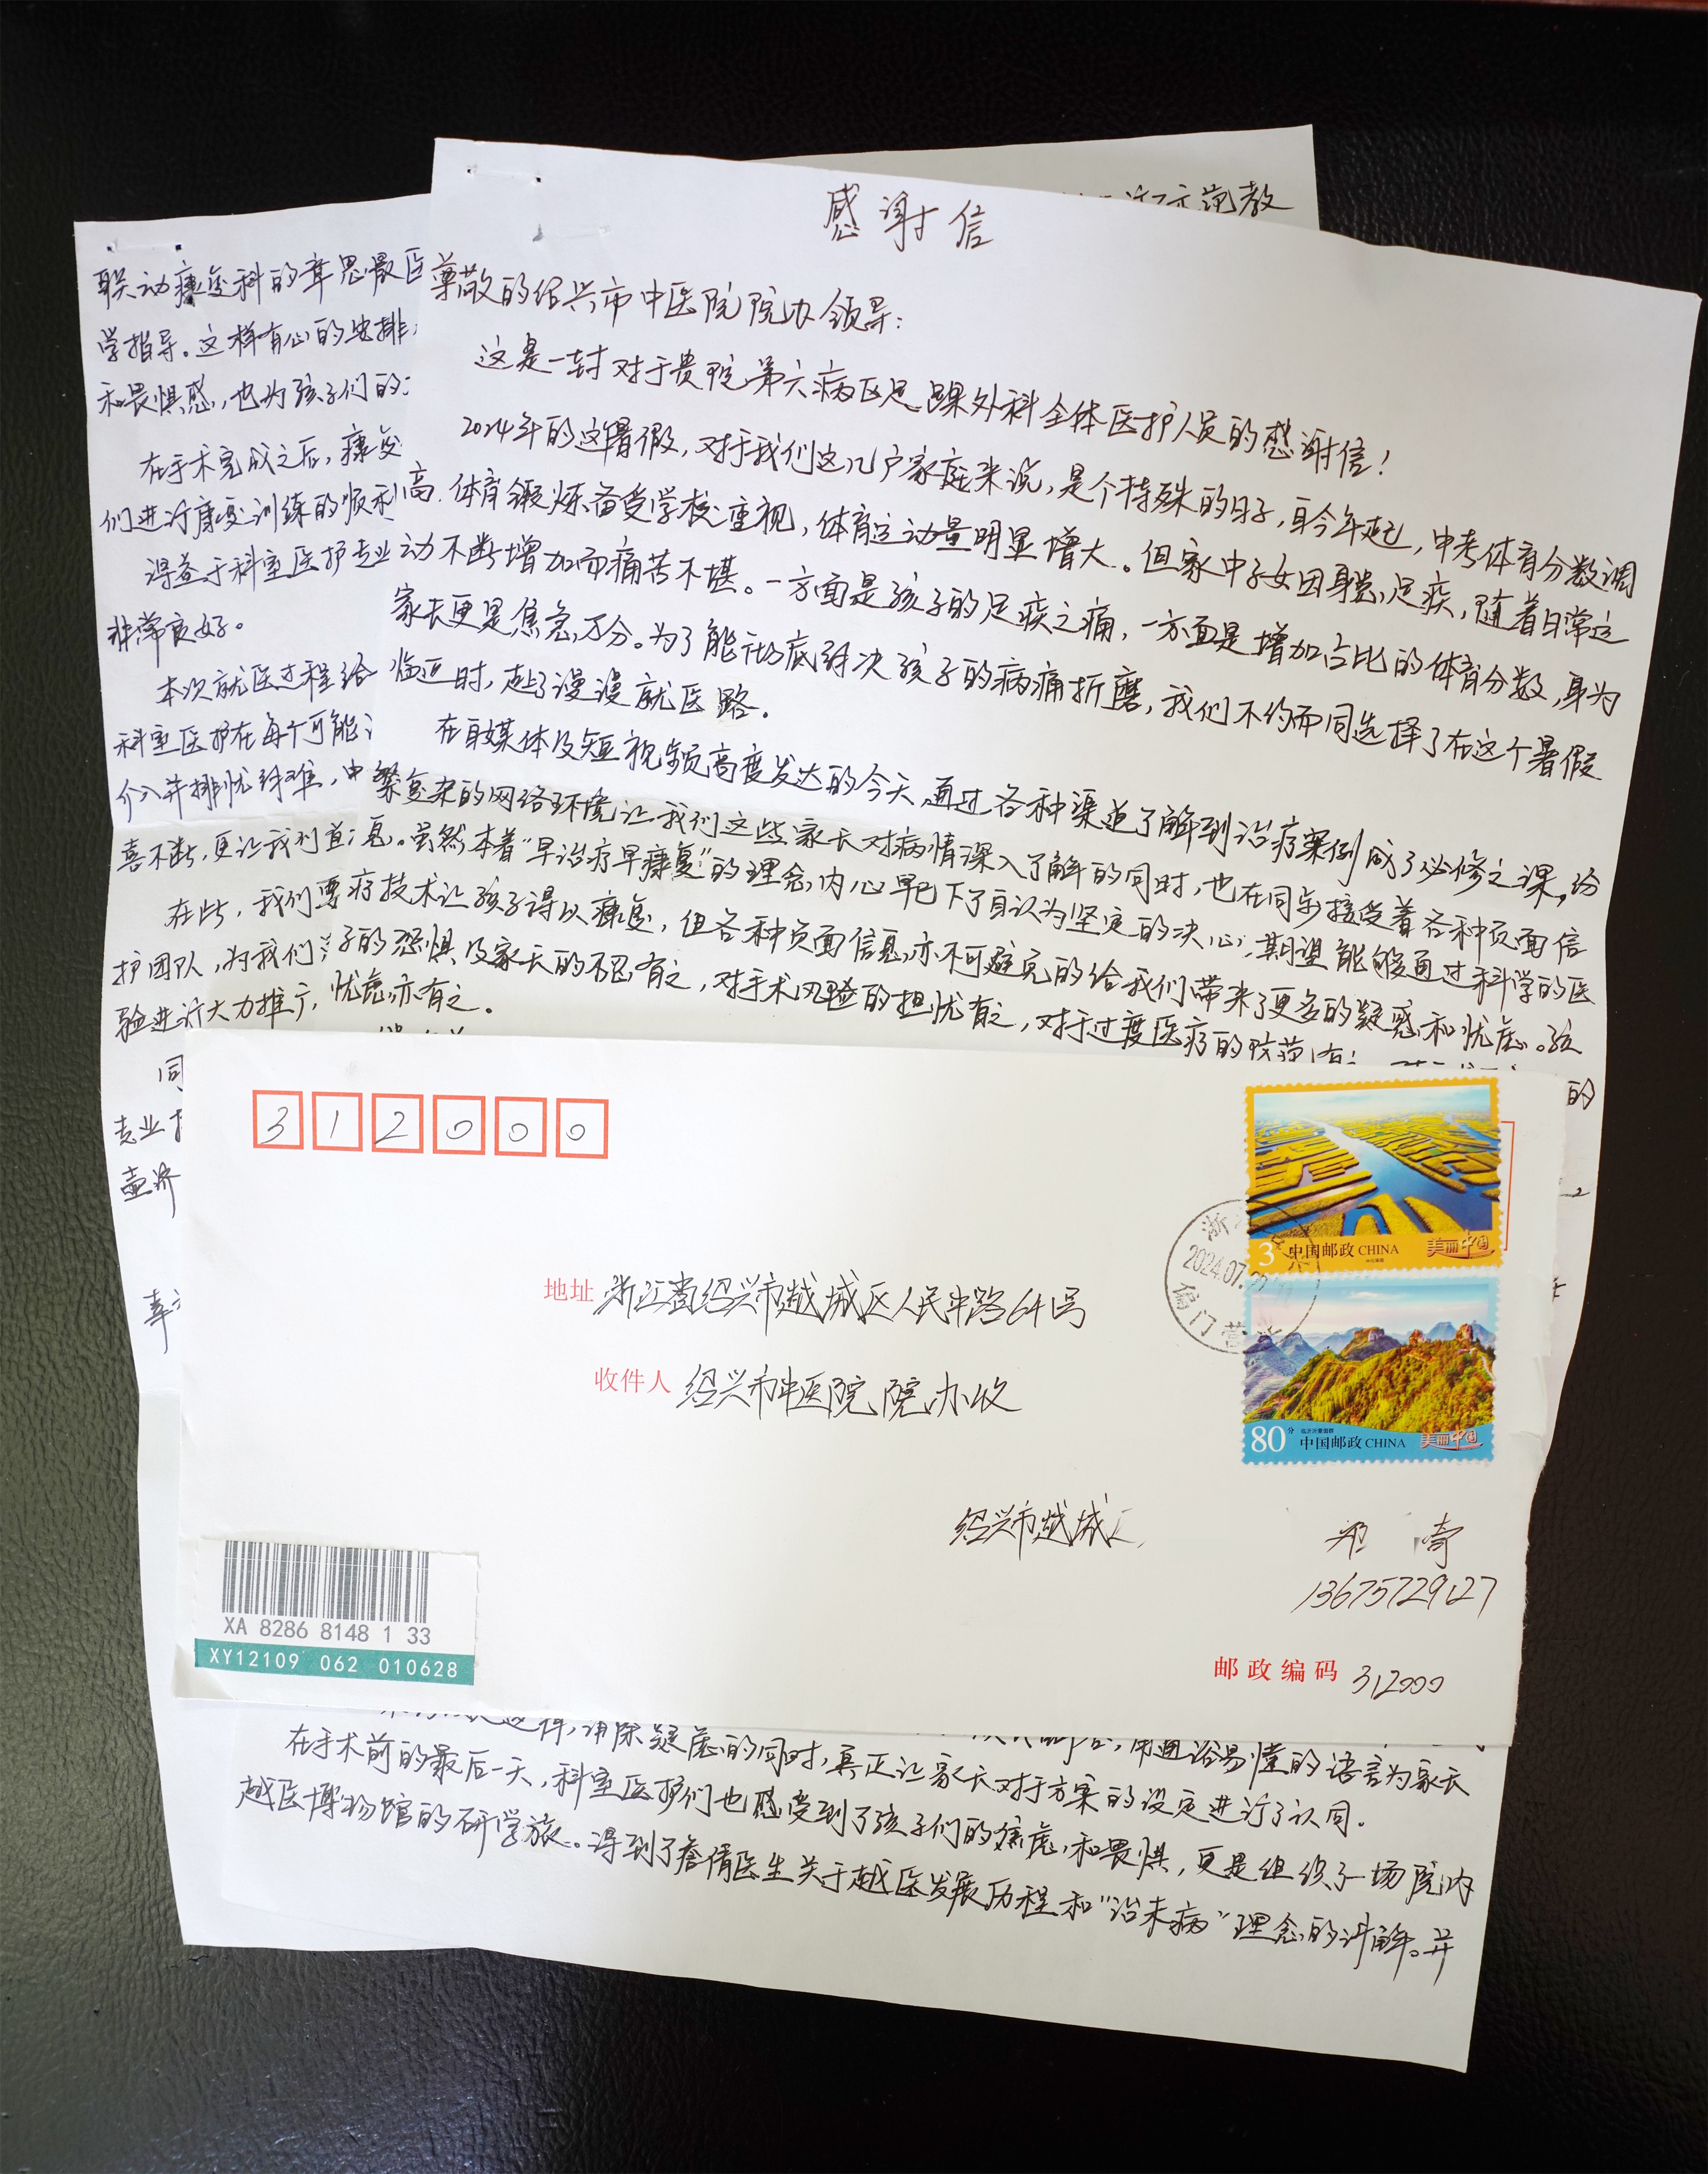 感谢信
尊敬的绍兴市中医院院办领导：
这是一封对于贵院第六病区足踝外科全体医护人员的感谢信！
2024年的这暑假，对于我们这几户家庭来说，是个特殊的日子，自今年起，中考体育分数调
高，体育锻炼备受学校重视，体育运动量明显增大。但家中子女因身患足疾，随着日常运
动不断增加而痛苦不堪。一方面是孩子的足疾之痛，一方面是增加占比的体育分数，身为
家长更是焦急万分。为了能彻底解决孩子的病痛折磨，我们不约而同选择了在这个暑假
临近时，赴了漫漫就医路。
在自媒体及短视频高度发达的今天，通过各种渠道了解到治疗案例成了必修之课，纷
繁复杂的网络环境让我们这些家长对病情深入了解的同时，也在同步接受着各种页面信
息。虽然本着“早治疗早康复”的理念，内心早已下了自认为坚定的决心；期望能够通过科学的医
疗技术让孩子得以康复，但各种页面信息亦不可避免的给我们带来了更多的疑惑和忧虑。孩
子的恐惧及家长的不忍有之，对手术风险的担忧有之，对于过度医疗的防范
的
忧虑亦有之。
联动康复科的章思傲医
学指导。这样有心的安排，
和畏惧感，也为孩子们的
在手术完成之后，康复
们进行康复训练的顺利
得益于科室医护专业
非常良好。
本次就医过程给
科室医护在每个可能
介入并排忧解难，中
喜不断，更让我们首
在此，我们要
护团队，为我们
验进行大力推广，
同
专业
壶济
行示范教
312000
地址 浙江省绍兴市越城区人民中路641号
收件人 绍兴市中医院院办收
绍兴市越城
13675729127
邮政编码 312000
3
中国邮政 CHINA 美丽中国
80分
中国邮政 CHINA 美丽中国
浙
2024.07.
偏门营
XA 8286 8148 1 33
XY12109 062 010628
用通俗易懂的语言为家长
消除疑虑的同时，真正让家长对于方案的设定进行了认同。
在手术前的最后一天，科室医护们也感受到了孩子们的焦虑和畏惧，更是组织了一场院内
越医博物馆的研学旅。得到了詹倩医生关于越医发展历程和“治未病”理念的讲解。并